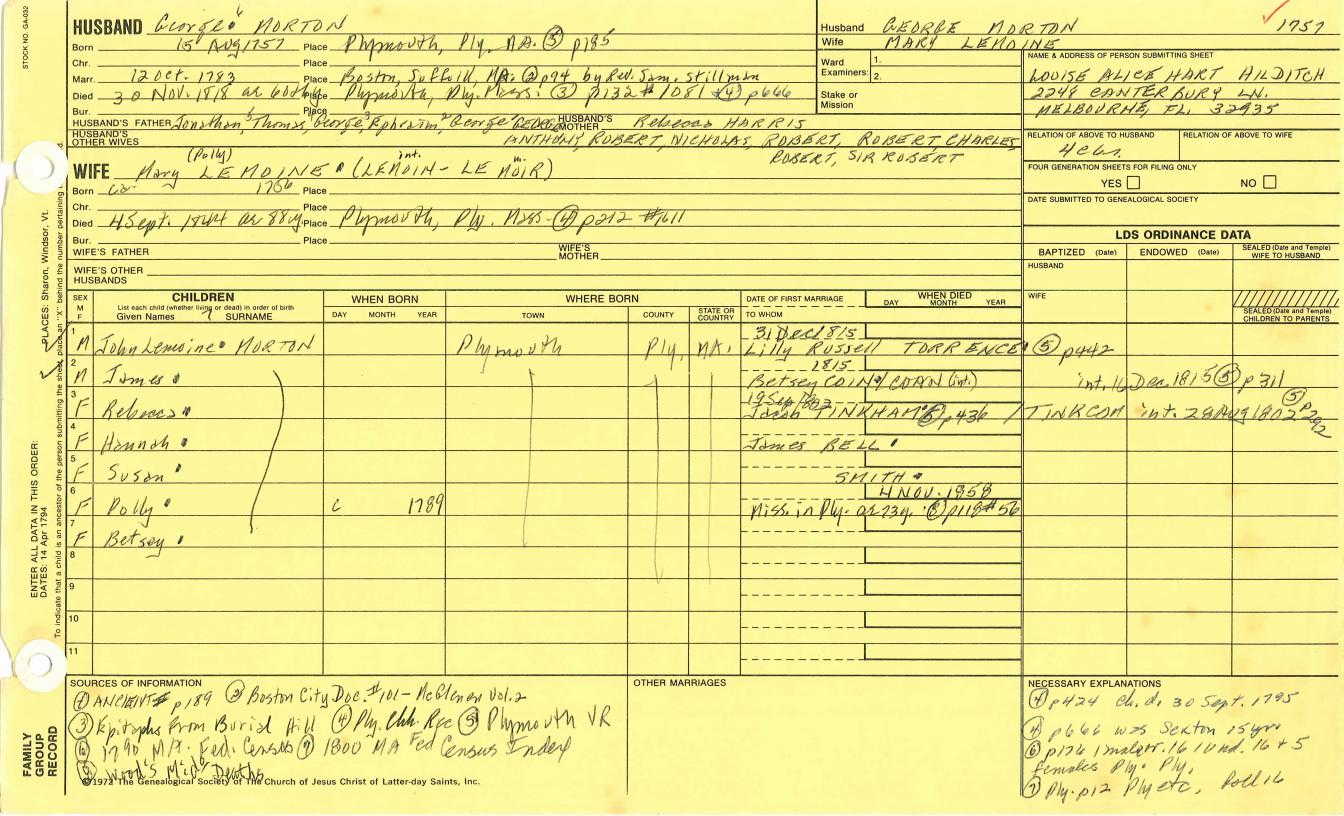 STOCK NO. GA-032
HUSBAND George 6 MORTON
Born 15 Aug 1757 Place Plymouth, Ply. MA. ⑤ p185
Chr. Place
Marr. 12 Oct. 1783 Place Boston, Suffolk, MA. ② p94 by Rev. Sam. Stillman
Died 30 Nov. 1818 ae 60th y Place Plymouth, Ply. Mass. ③ p132 # 1081 ④ p666
Bur. Place
HUSBAND'S FATHER Jonathan, 5 Thomas, 4 George, 3 Ephraim, 2 George GEORGE HUSBAND'S MOTHER Rebecca HARRIS
HUSBAND'S OTHER WIVES ANTHONY, ROBERT, NICHOLAS, ROBERT, ROBERT CHARLES,
ROBERT, SIR ROBERT
(Polly) int. m.
WIFE Mary LEMOINE (LEMOIN - LE MOIR)
Born Ca. 1756 Place
Chr. Place
Died 4 Sept. 1844 ae 88 y. Place Plymouth, Ply. Mass. ④ p212 #1611
Bur. Place
WIFE'S FATHER WIFE'S MOTHER
WIFE'S OTHER HUSBANDS
Husband GEORGE MORTON 1757
Wife MARY LEMOINE
Ward 1.
Examiners: 2.
Stake or Mission
NAME & ADDRESS OF PERSON SUBMITTING SHEET
LOUISE ALICE HART HILDITCH
2248 CANTERBURY LN.
MELBOURNE, FL. 32935
RELATION OF ABOVE TO HUSBAND RELATION OF ABOVE TO WIFE
FOUR GENERATION SHEETS FOR FILING ONLY
YES NO
DATE SUBMITTED TO GENEALOGICAL SOCIETY
LDS ORDINANCE DATA
BAPTIZED (Date) ENDOWED (Date) SEALED (Date and Temple) WIFE TO HUSBAND
HUSBAND
WIFE
SEALED (Date and Temple) CHILDREN TO PARENTS
SEX M F CHILDREN WHEN BORN WHERE BORN DATE OF FIRST MARRIAGE WHEN DIED
List each child (whether living or dead) in order of birth DAY MONTH YEAR TOWN COUNTY STATE OR COUNTRY TO WHOM DAY MONTH YEAR
Given Names SURNAME
31 Dec 1815
1 M John Lemoine MORTON Plymouth Ply. MA. Lilly Russell TORRENCE ⑤ p442
1815
2 M James Betsey COIN / COAN (int.) int. 16 Dec. 1815 ⑤ p311
19 Sep 1802
3 F Rebecca Jacob TINKHAM ⑧ p436 / TINKCOM int. 28 Aug 1802 ⑤ p292
4 F Hannah James BELL
5 F Susan SMITH
4 NOV. 1858
6 F Polly c 1789 Miss. in Ply. ae 73 y. ③ p118 # 56
7 F Betsey
8
9
10
11
PLACES: Sharon, Windsor, Vt.
ENTER ALL DATA IN THIS ORDER:
DATES: 14 Apr 1794
FAMILY GROUP RECORD
SOURCES OF INFORMATION
① ANCIENT p189 ② Boston City Doc. #101 - McGlenen Vol. 2
③ Epitaphs from Burial Hill ④ Ply. Chh. Rec ⑤ Plymouth VR
⑥ 1790 MA. Fed. Census ⑦ 1800 MA Fed Census Index
⑧ Wood's Mid'b Deaths
©1972 The Genealogical Society of The Church of Jesus Christ of Latter-day Saints, Inc.
OTHER MARRIAGES
NECESSARY EXPLANATIONS
④ p424 ch. d. 30 Sept. 1795
④ p666 was Sexton 15 yrs
⑥ p176 1 male ov. 16 1 und. 16 + 5
females Ply. Ply.
⑦ Ply. p12 Ply etc, Roll 16